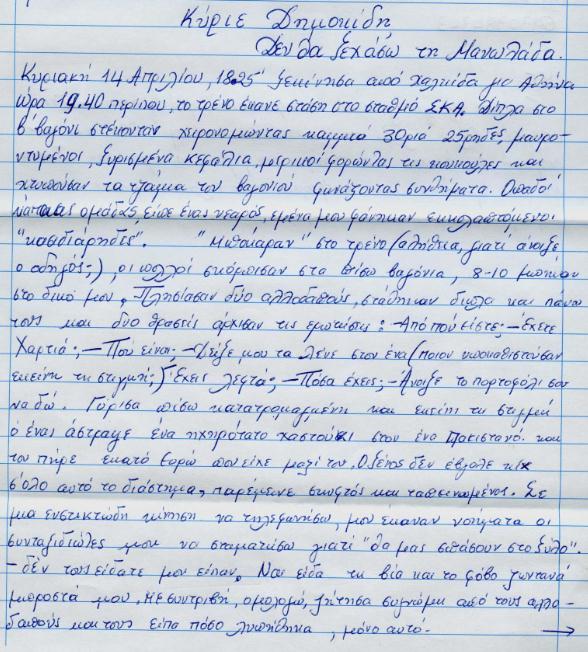 Κύριε Δημοκίδη
Δεν θα ξεχάσω τη Μανωλάδα.
Κυριακή 14 Απριλίου, 1825' ξεκίνησα από Χαλκίδα για Αθήνα
ώρα 19.40 περίπου, το τρένο έκανε στάση στο σταθμό ΣΚΑ. Δίπλα στο
β' βαγόνι στέκονταν χειρονομώντας καμμιά 30ριά 25ρηδες, μαυρο-
ντυμένοι, ξυρισμένα κεφάλια, μερικοί φορώντας τις κουκούλες και
χτυπούσαν τα τζάμια του βαγονιού φωνάζοντας συνθήματα. Οπαδοί
κάποιας ομάδας, είπε ένας νεαρός, εμένα μου φάνηκαν εκκολαπτόμενοι
"κασιδιάρηδες". "Μπούκαραν" στο τρένο (αλήθεια, γιατί άνοιξε
ο οδηγός;), οι πολλοί σκόρπισαν στα πίσω βαγόνια, 8-10 μπήκαν
στο δικό μου. Πλησίασαν δύο αλλοδαπούς, στάθηκαν δίπλα και πάνω
τους και δυο θρασείς άρχισαν τις ερωτήσεις: - Από πού είστε; - Έχετε
Χαρτιά; - Πού είναι; - Δείξε μου τα λένε στον ένα (ποιον υποκαθιστούσαν
εκείνη τη στιγμή;) Έχεις λεφτά; - Πόσα έχεις; - Άνοιξε το πορτοφόλι σου
να δω. Γύρισα πίσω κατατρομαγμένη και εκείνη τη στιγμή
ο ένας άστραψε ένα ηχηρότατο χαστούκι στον ένα Πακιστανό και
του πήρε εκατό ευρώ που είχε μαζί του. Ο ξένος δεν έβγαλε κιχ
σ'όλο αυτό το διάστημα, παρέμεινε σκυφτός και ταπεινωμένος. Σε
μια ενστικτώδη κίνηση να τηλεφωνήσω, μου έκαναν νοήματα οι
συνταξιδιώτες μου να σταματήσω γιατί "θα μας σπάσουν στο ξύλο".
- δεν τους είδατε μου είπαν. Ναι είδα τη βία και το φόβο ζωντανά
μπροστά μου. Με συντριβή, ομολογώ, ζήτησα συγνώμη από τους αλλο-
δαπούς και τους είπα πόσο λυπήθηκα, μόνο αυτό. →